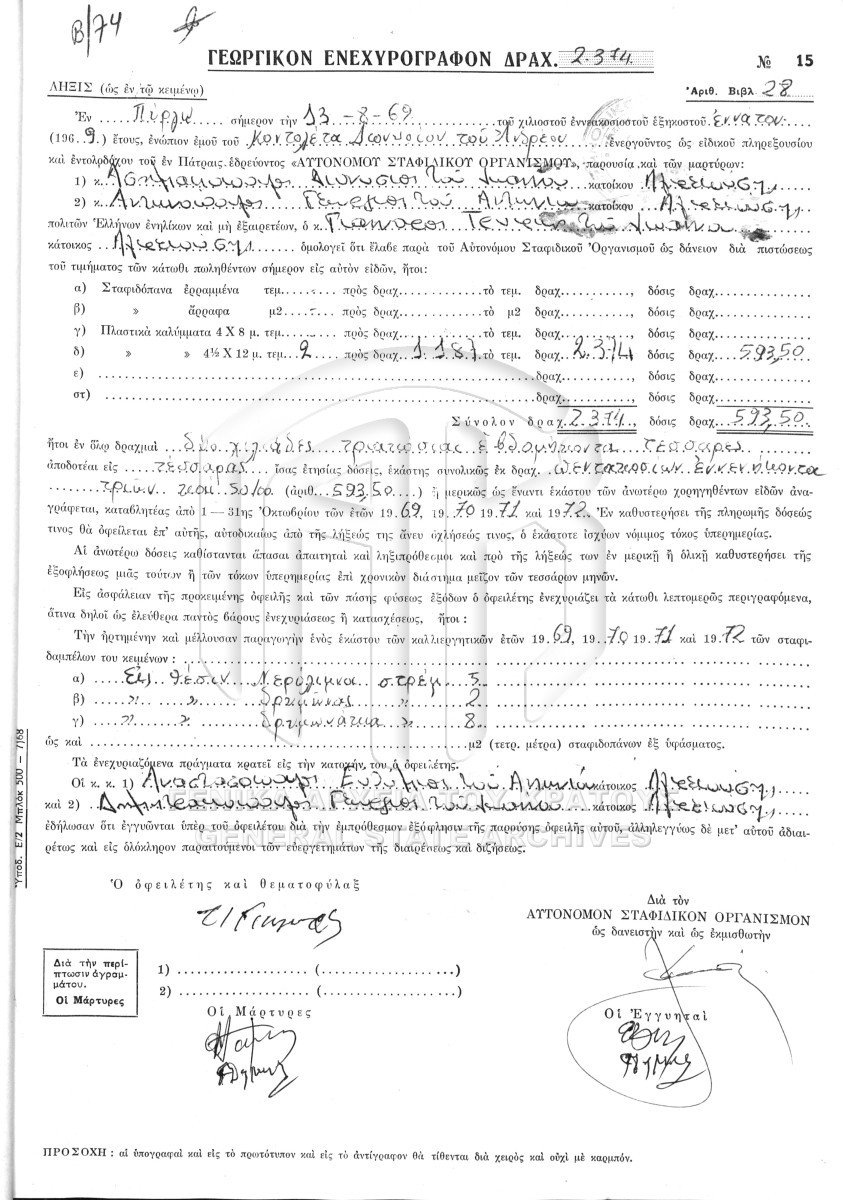 Β/74
ΓΕΩΡΓΙΚΟΝ ΕΝΕΧΥΡΟΓΡΑΦΟΝ ΔΡΑΧ. 2.374. № 15
ΛΗΞΙΣ (ὡς ἐν τῷ κειμένῳ) Ἀριθ. Βιβλ. 28
Ἐν Πύργῳ σήμερον τὴν 13-8-69 τοῦ χιλιοστοῦ ἐννεακοσιοστοῦ ἑξηκοστοῦ ἐννάτου
(1969) ἔτους, ἐνώπιον ἐμοῦ τοῦ Διονυσίου τοῦ Ἀνδρέου ἐνεργοῦντος ὡς εἰδικοῦ πληρεξουσίου
καὶ ἐντολοδόχου τοῦ ἐν Πάτραις ἑδρεύοντος «ΑΥΤΟΝΟΜΟΥ ΣΤΑΦΙΔΙΚΟΥ ΟΡΓΑΝΙΣΜΟΥ», παρουσίᾳ καὶ τῶν μαρτύρων:
1) κ. Διονύσιος τοῦ κατοίκου
2) κ. Γεώργιος τοῦ κατοίκου
πολιτῶν Ἑλλήνων ἐνηλίκων καὶ μὴ ἐξαιρετέων, ὁ κ. τοῦ
κάτοικος ὁμολογεῖ ὅτι ἔλαβε παρὰ τοῦ Αὐτονόμου Σταφιδικοῦ Ὀργανισμοῦ ὡς δάνειον διὰ πιστώσεως
τοῦ τιμήματος τῶν κάτωθι πωληθέντων σήμερον εἰς αὐτὸν εἰδῶν, ἤτοι:
α) Σταφιδόπανα ἐρραμμένα τεμ. πρὸς δραχ. τὸ τεμ. δραχ. , δόσις δραχ.
β) » ἄρραφα μ2 πρὸς δραχ. τὸ μ2 δραχ. , δόσις δραχ.
γ) Πλαστικὰ καλύμματα 4 Χ 8 μ. τεμ. πρὸς δραχ. τὸ τεμ. δραχ. , δόσις δραχ.
δ) » » 4½ Χ 12 μ. τεμ. 2 πρὸς δραχ. 1.187 τὸ τεμ. δραχ. 2.374, δόσις δραχ. 593,50
ε) δραχ. , δόσις δραχ.
στ) δραχ. , δόσις δραχ.
Σύνολον δραχ. 2.374, δόσις δραχ. 593,50
ἤτοι ἐν ὅλῳ δραχμαὶ δύο χιλιάδες τριακόσιαι ἑβδομήκοντα τέσσαρες
ἀποδοτέαι εἰς τέσσαρας ἴσας ἐτησίας δόσεις, ἑκάστης συνολικῶς ἐκ δραχ. πεντακοσίων ἐννενήκοντα
τριῶν καὶ 50/00 (ἀριθ. 593,50) ἢ μερικῶς ὡς ἔναντι ἑκάστου τῶν ἀνωτέρω χορηγηθέντων εἰδῶν ἀνα-
γράφεται, καταβλητέας ἀπὸ 1 — 31ης Ὀκτωβρίου τῶν ἐτῶν 1969, 1970 1971 καὶ 1972. Ἐν καθυστερήσει τῆς πληρωμῆς δόσεώς
τινος θὰ ὀφείλεται ἐπ' αὐτῆς, αὐτοδικαίως ἀπὸ τῆς λήξεώς της ἄνευ ὀχλήσεώς τινος, ὁ ἑκάστοτε ἰσχύων νόμιμος τόκος ὑπερημερίας.
Αἱ ἀνωτέρω δόσεις καθίστανται ἅπασαι ἀπαιτηταὶ καὶ ληξιπρόθεσμοι καὶ πρὸ τῆς λήξεώς των ἐν μερικῇ ἢ ὁλικῇ καθυστερήσει τῆς
ἐξοφλήσεως μιᾶς τούτων ἢ τῶν τόκων ὑπερημερίας ἐπὶ χρονικὸν διάστημα μεῖζον τῶν τεσσάρων μηνῶν.
Εἰς ἀσφάλειαν τῆς προκειμένης ὀφειλῆς καὶ τῶν πάσης φύσεως ἐξόδων ὁ ὀφειλέτης ἐνεχυριάζει τὰ κάτωθι λεπτομερῶς περιγραφόμενα,
ἅτινα δηλοῖ ὡς ἐλεύθερα παντὸς βάρους ἐνεχυριάσεως ἢ κατασχέσεως, ἤτοι :
Τὴν ἠρτημένην καὶ μέλλουσαν παραγωγὴν ἑνὸς ἑκάστου τῶν καλλιεργητικῶν ἐτῶν 1969, 1970 1971 καὶ 1972 τῶν σταφι-
δαμπέλων του κειμένων :
α) Εἰς θέσιν στρέμ. 5
β) » » » 2
γ) » » » 8
ὡς καὶ μ2 (τετρ. μέτρα) σταφιδοπάνων ἐξ ὑφάσματος.
Τὰ ἐνεχυριαζόμενα πράγματα κρατεῖ εἰς τὴν κατοχήν του ὁ ὀφειλέτης.
Οἱ κ. κ. 1) τοῦ κάτοικος
καὶ 2) Γεώργιος τοῦ κάτοικος
ἐδήλωσαν ὅτι ἐγγυῶνται ὑπὲρ τοῦ ὀφειλέτου διὰ τὴν ἐμπρόθεσμον ἐξόφλησιν τῆς παρούσης ὀφειλῆς αὐτοῦ, ἀλληλεγγύως δὲ μετ' αὐτοῦ ἀδιαι-
ρέτως καὶ εἰς ὁλόκληρον παραιτούμενοι τῶν εὐεργετημάτων τῆς διαιρέσεως καὶ διζήσεως.
ΓΕΝΙΚΑ ΑΡΧΕΙΑ ΤΟΥ ΚΡΑΤΟΥΣ
GENERAL STATE ARCHIVES
Ὑποδ. Ε/2 Μπλὸκ 500 — 7/68
Ὁ ὀφειλέτης καὶ θεματοφύλαξ
Διὰ τὸν
ΑΥΤΟΝΟΜΟΝ ΣΤΑΦΙΔΙΚΟΝ ΟΡΓΑΝΙΣΜΟΝ
ὡς δανειστὴν καὶ ὡς ἐκμισθωτὴν
Διὰ τὴν περί-
πτωσιν ἀγραμ-
μάτου.
Οἱ Μάρτυρες
1) (.....)
2) (.....)
Οἱ Μάρτυρες
Οἱ Ἐγγυηταὶ
ΠΡΟΣΟΧΗ : αἱ ὑπογραφαὶ καὶ εἰς τὸ πρωτότυπον καὶ εἰς τὸ ἀντίγραφον θὰ τίθενται διὰ χειρὸς καὶ οὐχὶ μὲ καρμπόν.